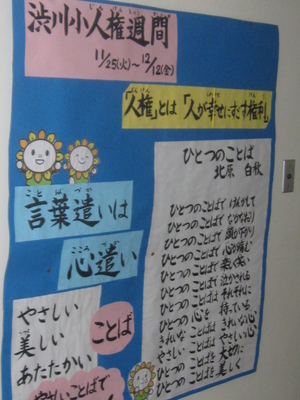 渋川小人権週間
11/25(火)～12/12(金)
「人権」とは「人が幸せにすごす権利」
言葉遣いは
心遣い
やさしい
美しい
あたたかい
ことば
ひとつのことば
北原 白秋
ひとつのことばで けんかして
ひとつのことばで なかなおり
ひとつのことばで 頭が下がり
ひとつのことばで 心が痛む
ひとつのことばで 楽しく笑い
ひとつのことばで 泣かされる
ひとつのことばは それぞれに
ひとつの心を 持っている
きれいなことばは きれいな心
やさしいことばは やさしい心
ひとつのことばを 大切に
ひとつのことばを 美しく